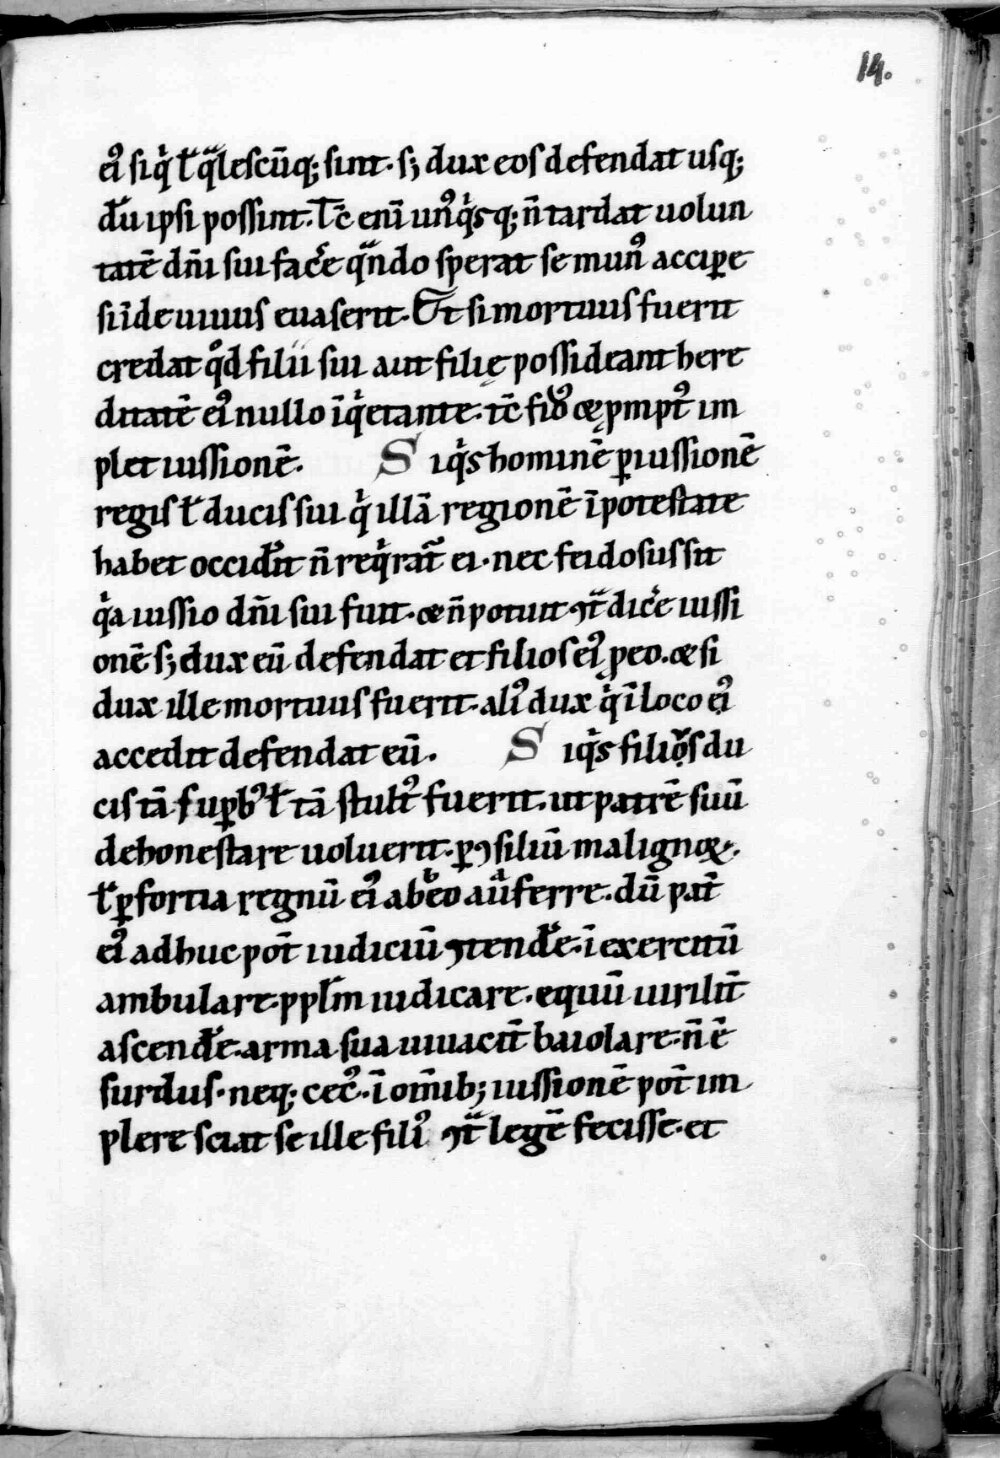 14.
eiꝰ siqͥ ł qͣlescūq; sint. sʒ dux eos defendat usq;
dū ipsi possint. Tc̄ enī unꝰqͥsq; n̄ tardat uolun
tatē dn̄i sui facͤe qͣndo sperat se munꝰ accipe
si īde uiuus euaserit. Et si mortuus fuerit
credat qͦd filii sui aut filię possideant here
ditatē eiꝰ nullo īqͥetante. tc̄ fidꝰ & ꝓmptꝰ im
plet iussionē. Siqͥs hominē ꝑ iussionē
regis ł ducis sui qͥ illā regionē ī potestate
habet occidͥt n̄ reqͥrat̄ ei. nec feidosus sit
qͥa iussio dn̄i sui fuit. & n̄ potuit ꝯtͣdicͤe iussi
onē. sʒ dux eū defendat et filios eiꝰ ꝓ eo. & si
dux ille mortuus fuerit. aliꝰ dux qͥ ī loco eiꝰ
accedit defendat eū. Siqͥs filiꝰ du
cis tā suꝑbꝰ ł tā stultꝰ fuerit. ut patrē suū
dehonestare uoluerit. ꝑ ꝯsiliū malignoꝝ.
ł ꝑ fortia regnū eiꝰ ab eo auferre. dū pat̄
eiꝰ adhuc pot̄ iudiciū ꝯtendͤe. ī exercitū
ambulare. pplm̄ iudicare. equū uirilit̄
ascendͤe. arma sua uiuacit̄ baiolare. n̄ ē
surdus. neq; cecꝰ. ī om̄ib; iussionē pot̄ im
plere sciat se ille filiꝰ ꝯtͣ legē fecisse. et